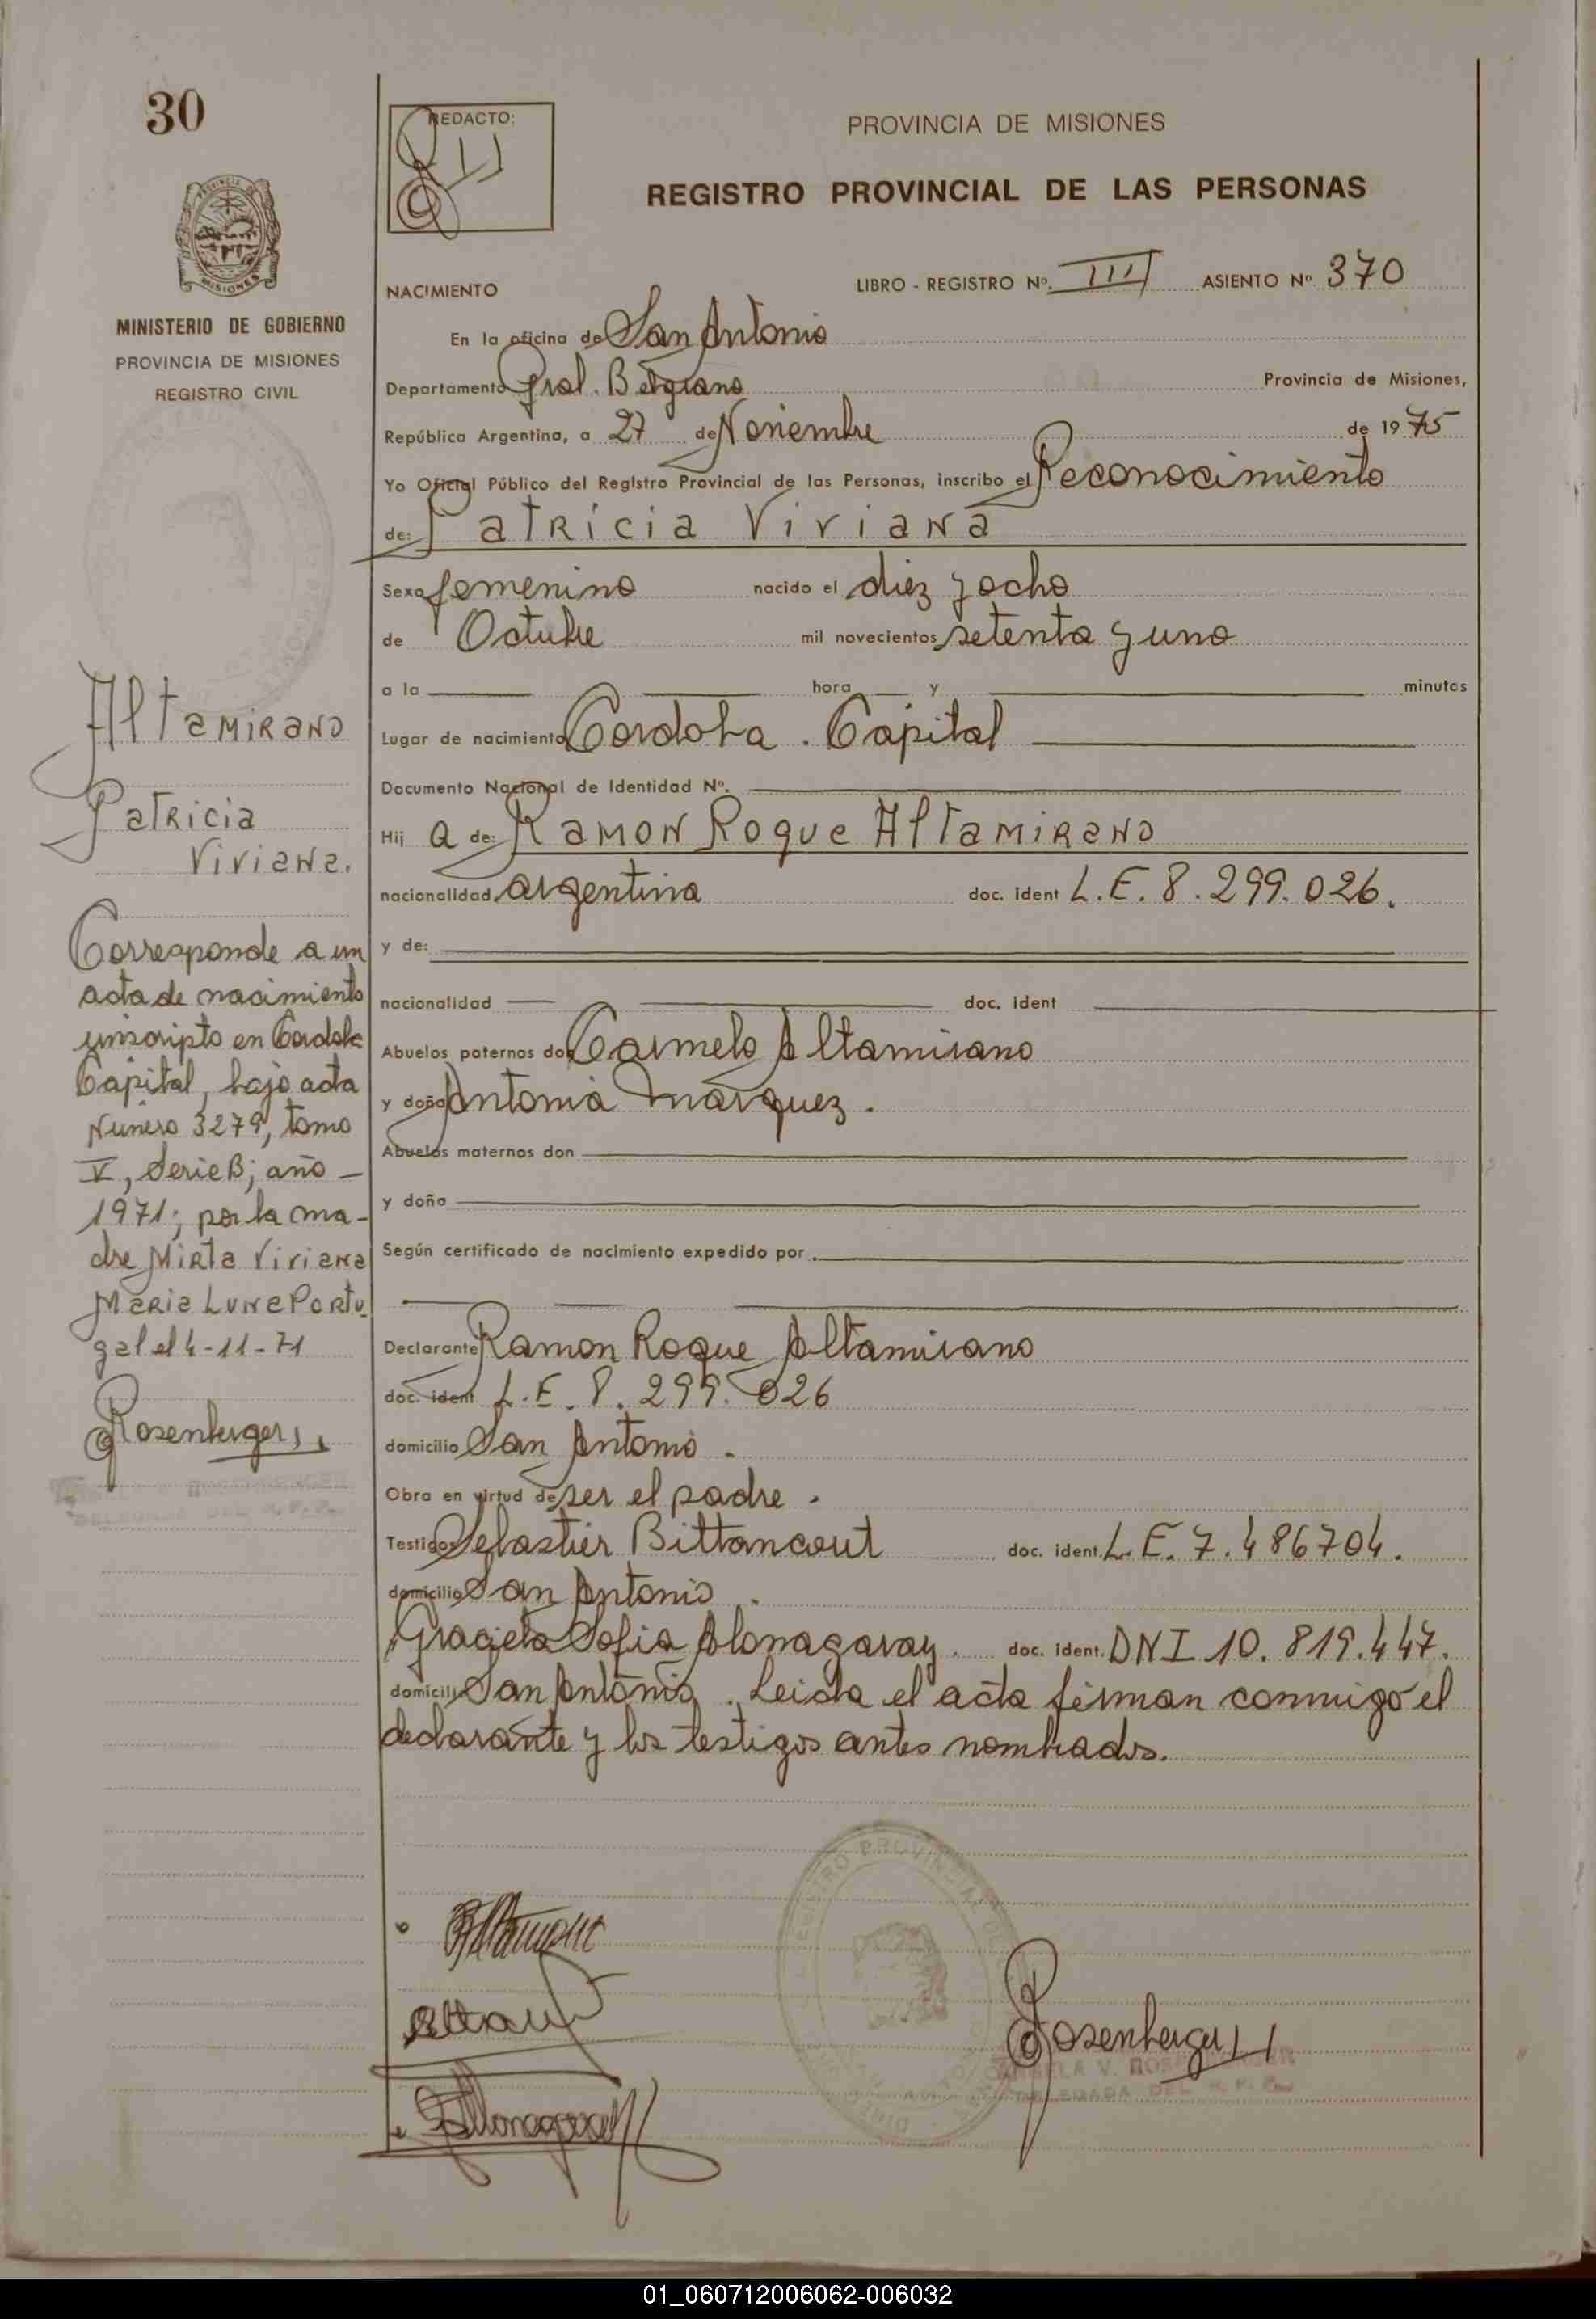 30
REDACTO:
PROVINCIA DE MISIONES
REGISTRO PROVINCIAL DE LAS PERSONAS
PROVINCIA DE
MISIONES
MINISTERIO DE GOBIERNO
PROVINCIA DE MISIONES
REGISTRO CIVIL
NACIMIENTO LIBRO - REGISTRO Nº. III ASIENTO Nº. 370
En la oficina de San Antonio
Departamento Gral. Belgrano Provincia de Misiones,
República Argentina, a 27 de Noviembre de 1975
Yo Oficial Público del Registro Provincial de las Personas, inscribo el Reconocimiento
de: Patricia Viviana
Sexo femenino nacido el diez y ocho
de Octubre mil novecientos setenta y uno
a la hora y minutos
Lugar de nacimiento Cordoba. Capital
Documento Nacional de Identidad Nº.
Hij a de: Ramon Roque Altamirano
nacionalidad argentina doc. ident L.E. 8.299.026.
y de:
nacionalidad doc. ident
Abuelos paternos don Carmelo Altamirano
y doña Antonia Marquez.
Abuelos maternos don
y doña
Según certificado de nacimiento expedido por
Declarante Ramon Roque Altamirano
doc. ident L.E. 8.299.026
domicilio San Antonio.
Obra en virtud de ser el padre.
Testigos Sebastier Bittancourt doc. ident. L.E. 7.486704.
domicilio San Antonio.
Graciela Sofia Alonagaray. doc. ident. DNI 10.819.447.
domicilio San Antonio. Leida el acta firman conmigo el
declarante y los testigos antes nombrados.
Altamirano
Patricia
Viviana.
Corresponde a un
acta de nacimiento
inscripto en Cordoba
Capital, bajo acta
Número 3279, tomo
V, Serie B; año -
1971; por la ma-
dre Mirta Viviana
Maria Luna Portu-
gal el 4-11-71
Rosenberger
DELEGADA DEL R.P.P.
REGISTRO PROVINCIAL DE
Rosenberger
ANGELA V. ROSENBERGER
DELEGADA DEL R.P.P.
01_060712006062-006032